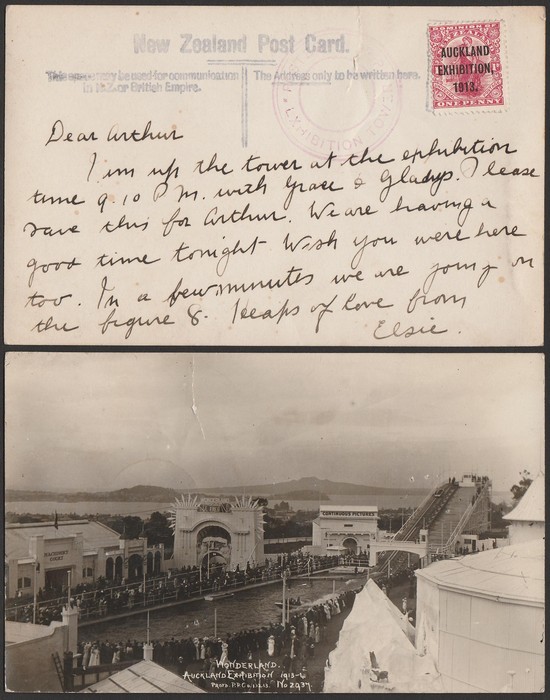 New Zealand Post Card.
This space may be used for communication
in N.Z. or British Empire.
The Address only to be written here.
EXHIBITION TOWER
AUCKLAND
EXHIBITION,
1913.
ONE PENNY
Dear Arthur
I im up the tower at the exhibition
time 9.10 P.M. with Grase & Gladys. Please
save this for Arthur. We are having a
good time tonight Wish you were here
too. In a few minutes we are going on
the figure 8. Heaps of love from
Elsie.
MACHINERY
COURT
CONTINUOUS PICTURES
WONDERLAND.
AUCKLAND EXHIBITION 1913-4
No 2937.